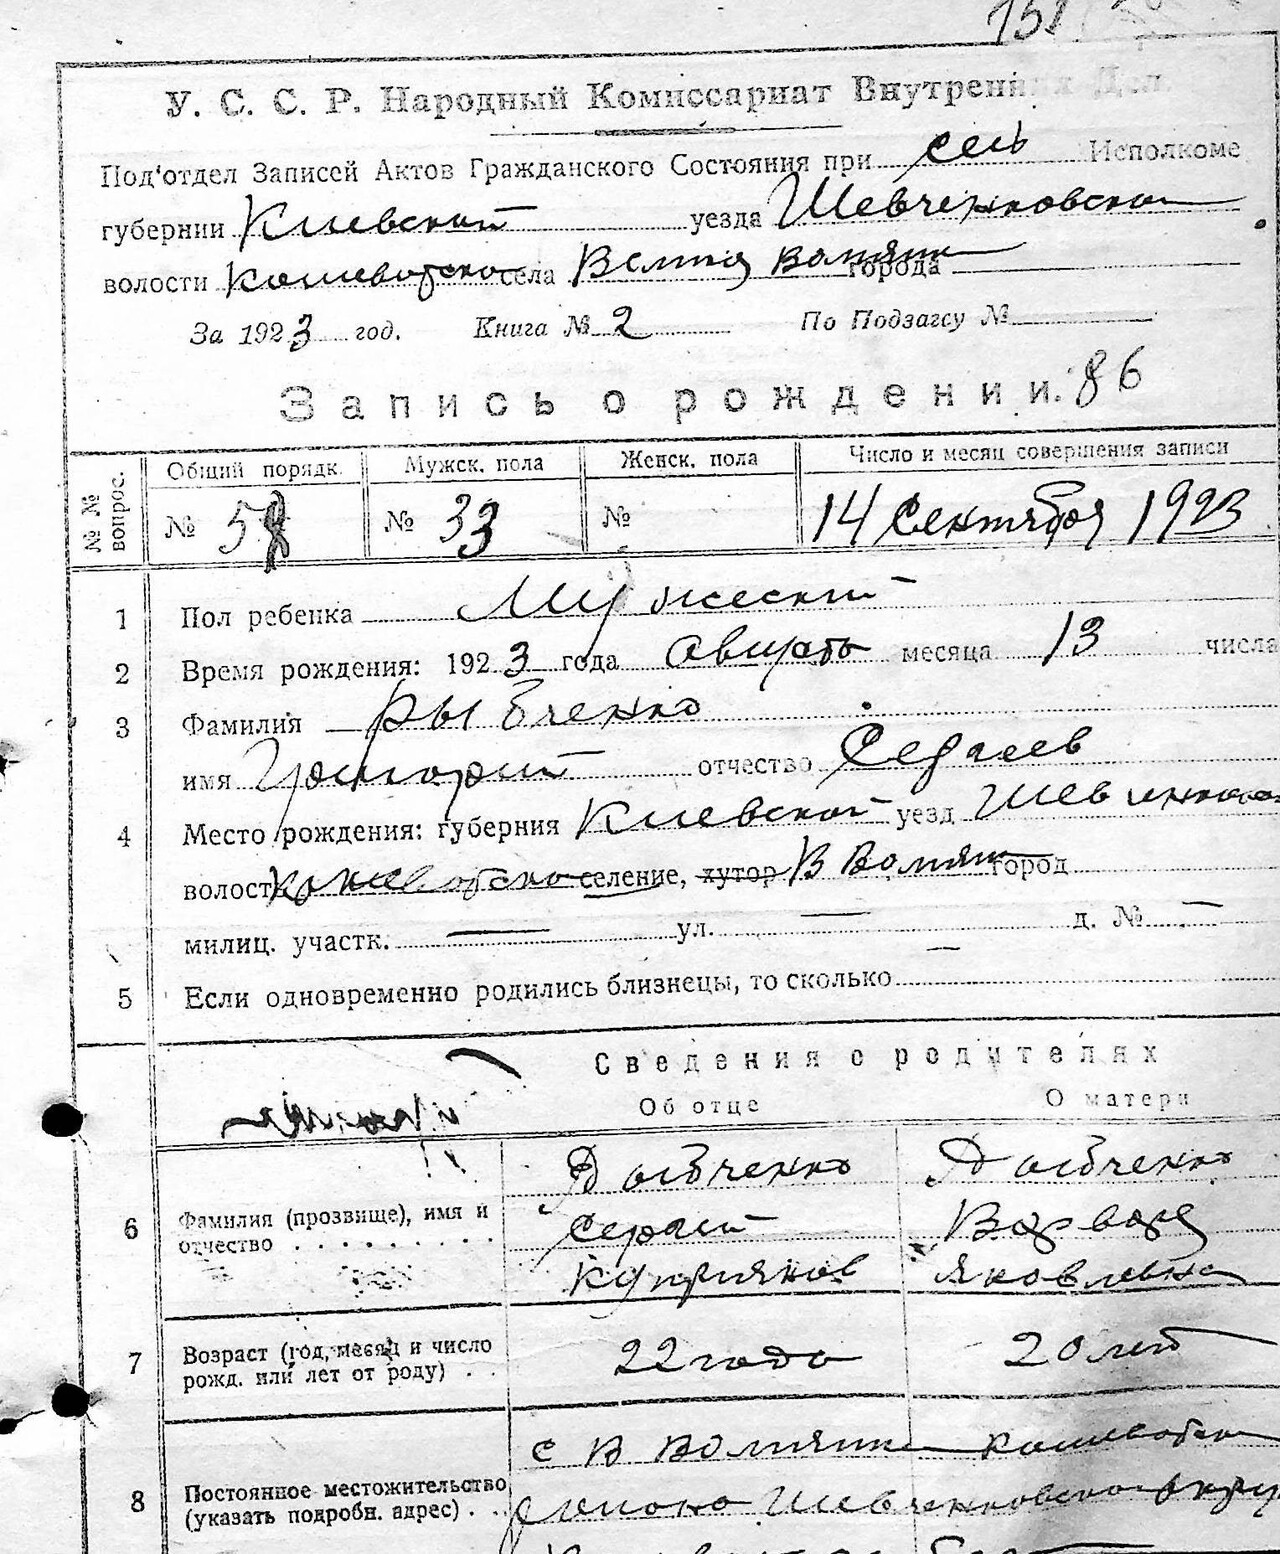 151
У. С. С. Р. Народный Комиссариат Внутренних Дел.
Под'отдел Записей Актов Гражданского Состояния при сель Исполкоме
губернии Киевской уезда Шевченковского
волости села города
За 1923 год. Книга № 2 По Подзагсу №
Запись о рождении. 86
№ № вопрос. Общий порядк. Мужск. пола Женск. пола Число и месяц совершения записи
№ 58 № 33 № 14 Сентября 1923
1 Пол ребенка Мужеский
2 Время рождения: 1923 года Августа месяца 13 числа
3 Фамилия Рыбченко
имя Григорий отчество Сергеев
4 Место рождения: губерния Киевской уезд
волость селение, хутор город
милиц. участк. — ул. — д. № —
5 Если одновременно родились близнецы, то сколько —
Сведения о родителях
Об отце О матери
6 Фамилия (прозвище), имя и отчество
Рыбченко Рыбченко
Сергей Варвара
Куприянов Яковлевна
7 Возраст (год, месяц и число рожд. или лет от роду) 22 года 20 лет
8 Постоянное местожительство (указать подробн. адрес)
с В
района Шевченковского